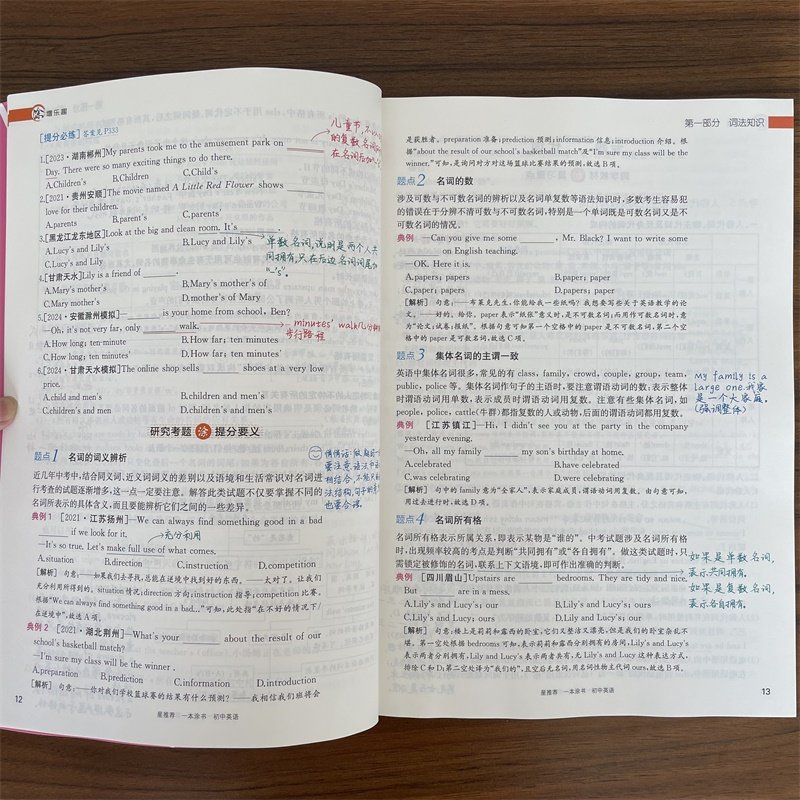 增乐园
[提分必练] 答案见P333
1.[2023·湖南郴州]My parents took me to the amusement park on
Day. There were so many exciting things to do there.
A.Children's B.Children C.Child's
2.[2021·贵州安顺]The movie named A Little Red Flower shows
love for their children.
A.parents B.parent's C.parents'
3.[黑龙江龙东地区]Look at the big and clean room. It's
A.Lucy's and Lily's B.Lucy and Lily's
C.Lucy's and Lily
4.[甘肃天水]Lily is a friend of
A.Mary's mother's B.Mary's mother's of
C.Mary mother's D.mother's of Mary
5.[2024·安徽滁州模拟]— is your home from school, Ben?
—Oh, it's not very far, only walk.
A.How long; ten-minute B.How far; ten minutes'
C.How long; ten minutes' D.How far; ten minutes
6.[2024·甘肃天水模拟]The online shop sells shoes at a very low
price.
A.child and men's B.children and men's
C.children's and men D.children's and men's
儿童节,
的复数名词
单数名词,说明是两个人共
同拥有,只在后边名词词尾加
“-'s”。
minutes' walk几分钟的
步行路程
研究考题 涂 提分要义
题点1 名词的词义辨析
近几年中考中,结合同义词、近义词词义的差别以及语境和生活常识对名词进
行考查的试题逐渐增多,这一点一定要注意。解答此类试题不仅要掌握不同的
名词所表示的具体含义,而且要能辨析它们之间的一些差异。
典例1 [2021·江苏扬州]—We can always find something good in a bad
if we look for it.
充分利用
—It's so true. Let's make full use of what comes.
A.situation B.direction C.instruction D.competition
[解析] 句意:——如果我们去寻找,总能在逆境中找到好的东西。——太对了。让我们
充分利用所得到的。situation情况;direction方向;instruction指导;competition比赛。
根据“We can always find something good in a bad...”可知,此处指“在不好的情况下/
在逆境中”,故选A项。
典例2 [2021·湖北荆州]—What's your about the result of our
school's basketball match?
—I'm sure my class will be the winner .
A.preparation B.prediction C.information D.introduction
[解析] 句意:——你对我们学校篮球赛的结果有什么预测?——我相信我们班将会
12
星推荐 一本涂书 初中英语
第一部分 词法知识
是获胜者。preparation准备;prediction预测;information信息;introduction介绍。根
据“about the result of our school's basketball match”及“I'm sure my class will be the
winner.”可知,是询问对方对这场篮球比赛结果的预测,故选B项。
题点2 名词的数
涉及可数与不可数名词的辨析以及名词单复数等语法知识时,多数考生容易犯
的错误在于分辨不清可数与不可数名词,特别是一个单词既是可数名词又是不
可数名词的情况。
典例 —Can you give me some , Mr. Black? I want to write some
on English teaching.
—OK. Here it is.
A.papers; papers B.paper; paper
C.paper; papers D.papers; paper
[解析] 句意:——布莱克先生,你能给我一些纸吗?我想要写些关于英语教学的论
文。——好的。给你。paper表示“纸张”意义时,是不可数名词;而用作可数名词时,意
为“论文;试卷;报纸”。根据句意可知第一个空格中的paper是不可数名词,第二个空
格中的paper是可数名词,故选C项。
题点3 集体名词的主谓一致
英语中集体名词很多,常见的有class, family, crowd, couple, group, team,
public, police等。集体名词作句子的主语时,要注意谓语动词的数,表示整体
时谓语动词用单数,表示成员时谓语动词用复数。注意有些集体名词,如
people, police, cattle(牛群)都指复数的人或动物,后面的谓语动词都用复数。
典例 [江苏镇江]—Hi, I didn't see you at the party in the company
yesterday evening.
—Oh, all my family my son's birthday at home.
A.celebrated B.have celebrated
C.was celebrating D.were celebrating
[解析] 句中的family意为“全家人”,表示家庭成员,谓语动词用复数。由句意可知,
用过去进行时,故选D项。
My family is a
large one.我家
是一个大家庭。
(强调整体)
题点4 名词所有格
名词所有格表示所属关系,即表示某物是“谁的”。中考试题涉及名词所有格
时,出现频率较高的考点是判断“共同拥有”或“各自拥有”。做这类试题时,只
需锁定被修饰的名词,联系上下文语境,即可作出准确的判断。
典例 [四川眉山]Upstairs are bedrooms. They are tidy and nice.
But are in a mess.
A.Lily's and Lucy's; our B.Lily's and Lucy's; ours
C.Lily and Lucy's; ours D.Lily and Lucy's; our
[解析] 句意:楼上是莉莉和露西的卧室,它们又整洁又漂亮,但是我们的卧室杂乱不
堪。第一空处根据bedrooms可知,表示莉莉和露西分别拥有的房间,Lily's and Lucy's
表示两者分别拥有,Lily and Lucy's表示两者共有,无Lily's and Lucy这种表达方式,
排除C和D;第二空处译为“我们的”,且空后无名词,用名词性物主代词ours,故选B项。
如果是单数名词,
表示共同拥有。
如果是复数名词,
表示各自拥有。
星推荐 一本涂书 初中英语
13